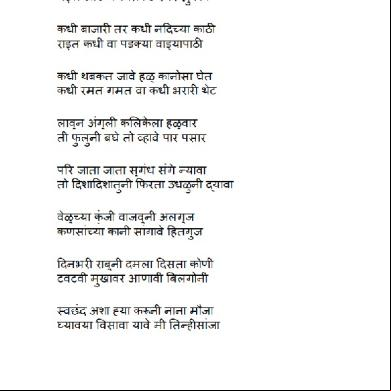 कधी बाजारी तर कधी नदिच्या काठी
राइत कधी वा पडक्या वाड्यापाठी
कधी थबकत जावे हळु कानोसा घेत
कधी रमत गमत वा कधी भरारी थेट
लावुन अंगुली कलिकेला हळुवार
ती फुलुनी बघे तो व्हावे पार पसार
परि जाता जाता सुगंध संगे न्यावा
तो दिशादिशातुनी फिरता उधळुनी द्यावा
वेळुच्या कुंजी वाजवुनी अलगुज
कणसांच्या कानी सांगावे हितगुज
दिनभरी राबुनी दमला दिसता कोणी
टवटवी मुखावर आणावी बिलगोनी
स्वछंद अशा ह्या करूनी नाना मौजा
घ्यावया विसावा यावे मी तिन्हीसांजा